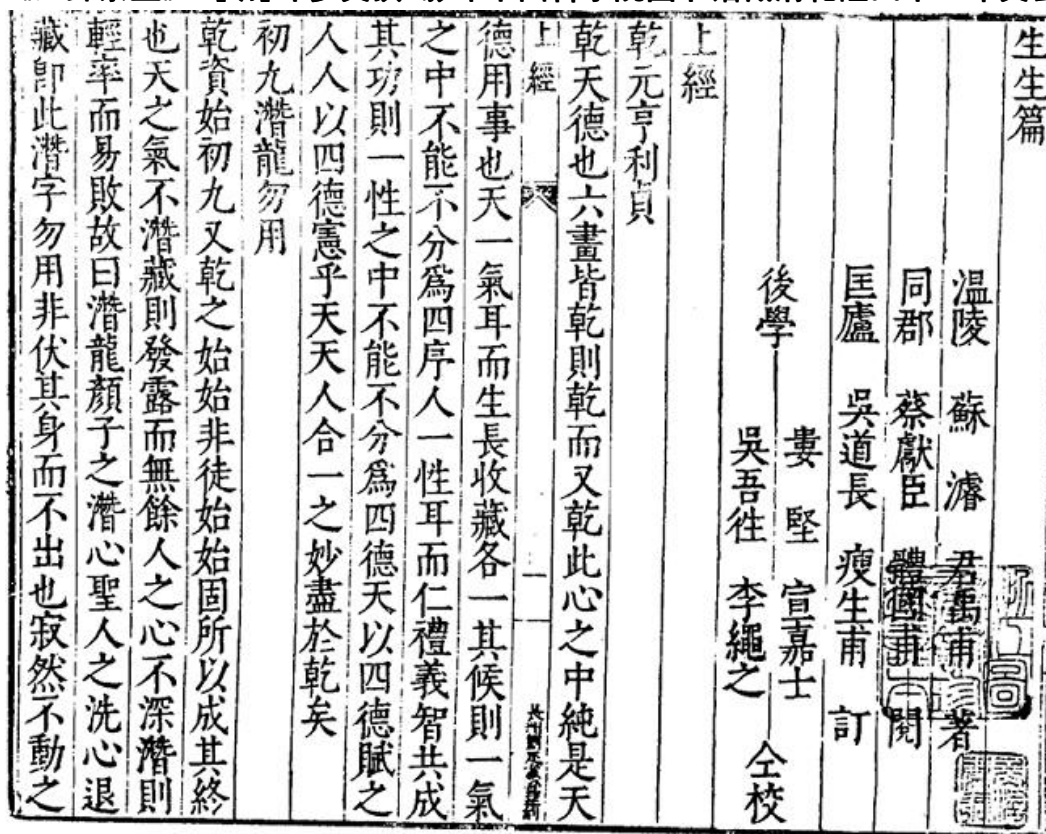 生生篇
溫陵 蘇濬 君禹甫 著
同郡 蔡獻臣 體國甫 閱
匡廬 吳道長 瘦生甫 訂
後學 婁堅 宣嘉士 吳吾徃 李繩之 仝校
上經
乾元亨利貞
乾天德也六畫皆乾則乾而又乾此心之中純是天
上經 一
德用事也天一氣耳而生長收藏各一其候則一氣
之中不能不分爲四序人一性耳而仁禮義智共成
其功則一性之中不能不分爲四德天以四德賦之
人人以四德憲乎天天人合一之妙盡於乾矣
初九潛龍勿用
乾資始初九又乾之始始非徒始始固所以成其終
也天之氣不潛藏則發露而無餘人之心不深潛則
輕率而易敗故曰潛龍顏子之潛心聖人之洗心退
藏卽此潛字勿用非伏其身而不出也寂然不動之